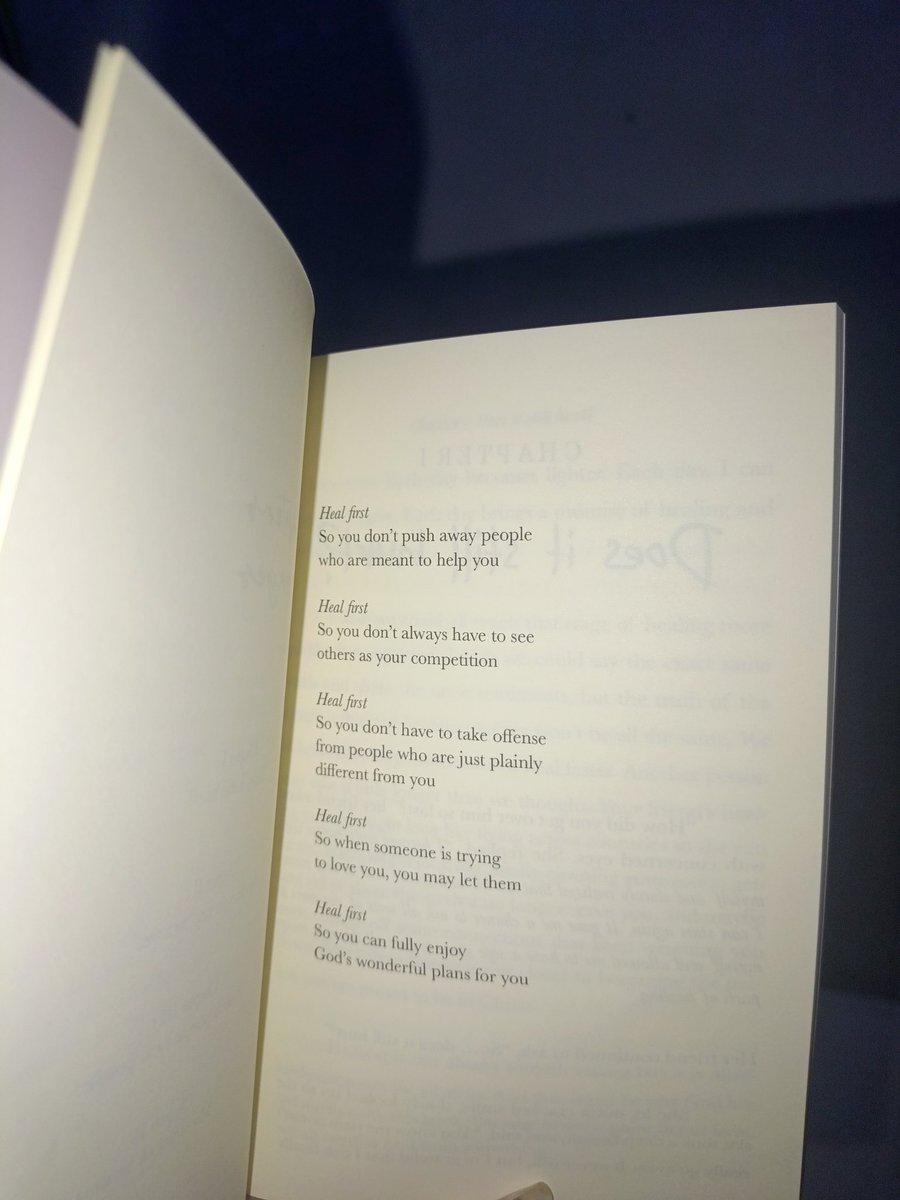 Heal first
So you don't push away people
who are meant to help you
Heal first
So you don't always have to see
others as your competition
Heal first
So you don't have to take offense
from people who are just plainly
different from you
Heal first
So when someone is trying
to love you, you may let them
Heal first
So you can fully enjoy
God's wonderful plans for you